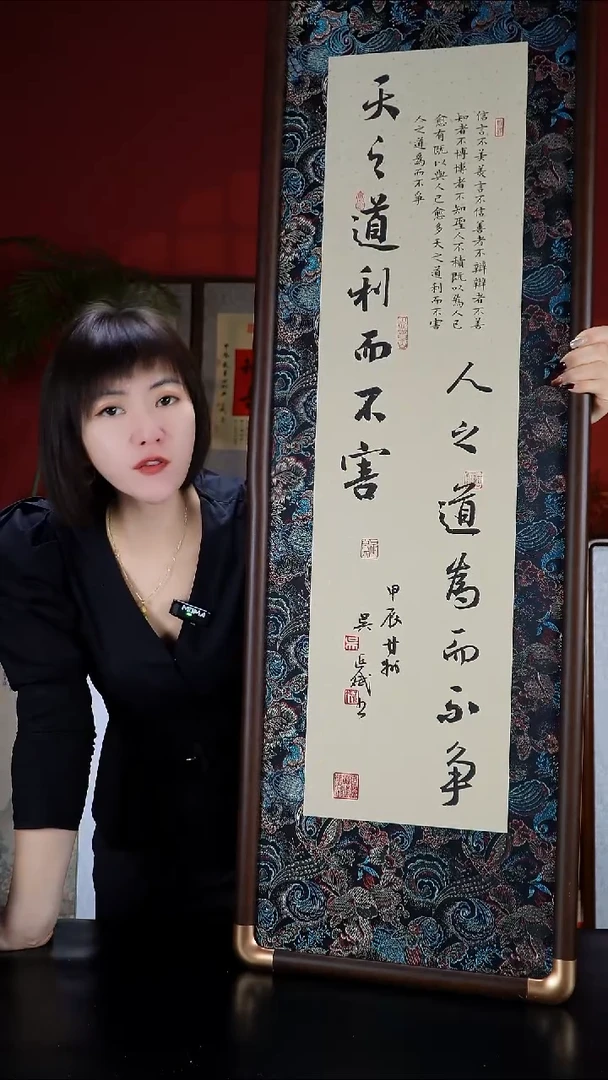 天之道利而不害
人之道為而不争
信言不美美言不信善者不辯辯者不善
知者不博博者不知聖人不積既以為人己
愈有既以與人己愈多天之道利而不害
人之道為而不爭
甲辰
吴
MOMA